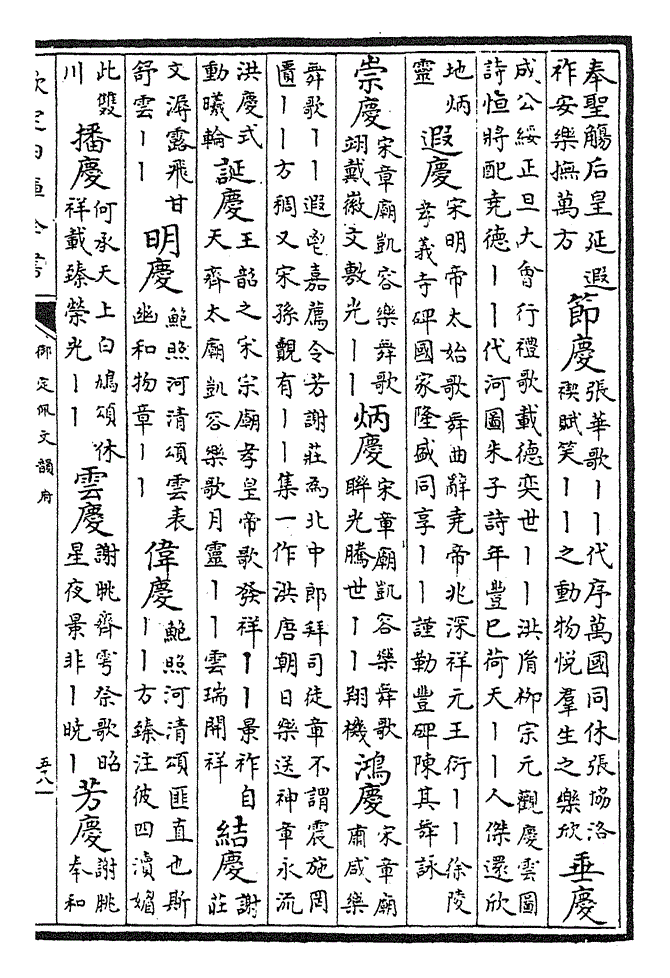 奉聖觴后皇延遐
祚安樂撫萬方
節慶
張華歌丨丨代序萬國同休張協洛
禊賦笑丨丨之動物悅羣生之樂欣
垂慶
成公綏正旦大會行禮歌載德奕世丨丨洪胤柳宗元觀慶雲圖
詩恒將配堯德丨丨代河圖朱子詩年豐已荷天丨丨人傑還欣
地炳
靈
遐慶
宋明帝太始歌舞曲辭堯帝兆深祥元王衍丨丨徐陵
孝義寺碑國家隆盛同享丨丨謹勒豐碑陳其舞詠
崇慶
宋章廟凱容樂舞歌
翊戴徽文敷光丨丨
炳慶
宋章廟凱容樂舞歌
聯光騰世丨丨翔機
鴻慶
宋章廟
肅咸樂
舞歌丨丨遐鬯嘉薦令芳謝莊為北中郎拜司徒章不謂震施罔
匱丨丨方稠又宋孫覿有丨丨集一作洪唐朝日樂送神章永流
洪慶式
動曦輪
誕慶
王韶之宋宗廟孝皇帝歌發祥丨丨景祚自
天齊太廟凱容樂歌月靈丨丨雲瑞開祥
結慶
謝
莊
文潺露飛甘
舒雲丨丨
明慶
鮑照河清頌雲表
幽和物章丨丨
偉慶
鮑照河清頌匪直也斯
丨丨方臻注彼四瀆媚
此雙
川
播慶
何承天上白鳩頌休
祥載臻榮光丨丨
雲慶
謝朓齊雩祭歌昭
星夜景非丨曉丨
芳慶
謝朓
奉和
欽定四庫全書
御定佩文韻府